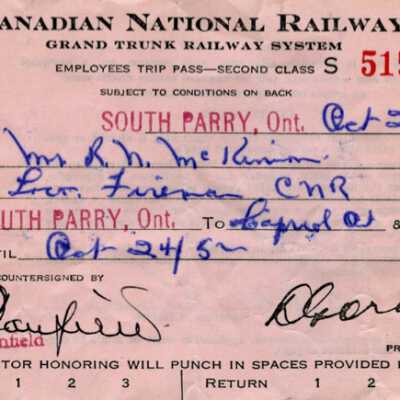 CANADIAN NATIONAL RAILWAY
GRAND TRUNK RAILWAY SYSTEM
EMPLOYEES TRIP PASS—SECOND CLASS S 515
SUBJECT TO CONDITIONS ON BACK
SOUTH PARRY, Ont. Oct 2
Mr R. N. McKinnon
Loco. Fireman CNR
OUTH PARRY, Ont. To Capreol Ot &
TIL Oct 24/5
COUNTERSIGNED BY
nfield
PR
TOR HONORING WILL PUNCH IN SPACES PROVIDED
1 2 3 RETURN 1 2